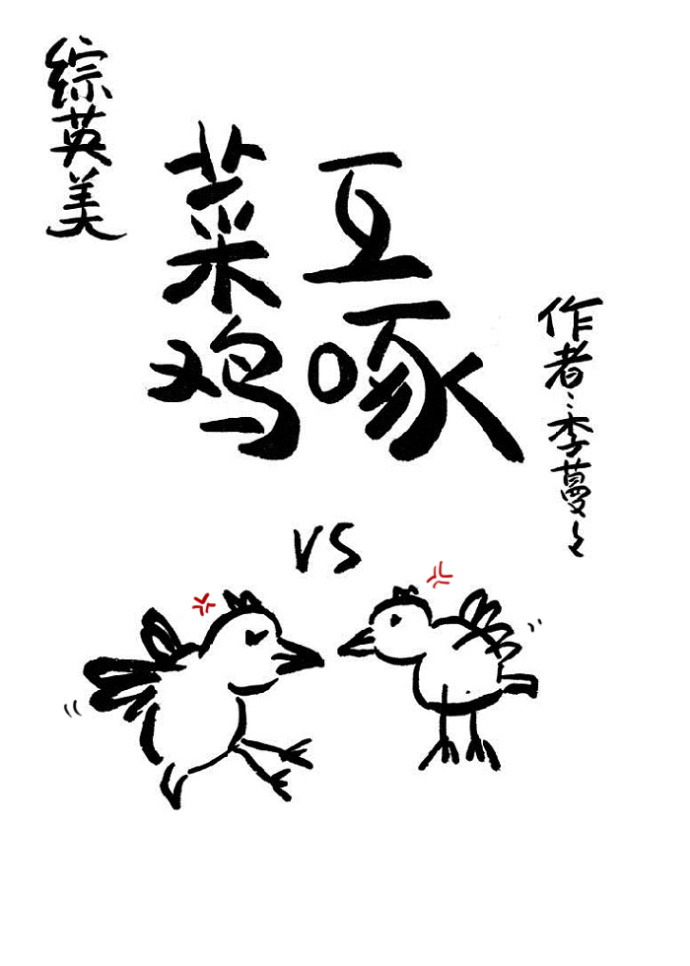 综英美
菜鸡
互啄
作者：李蔓々
VS